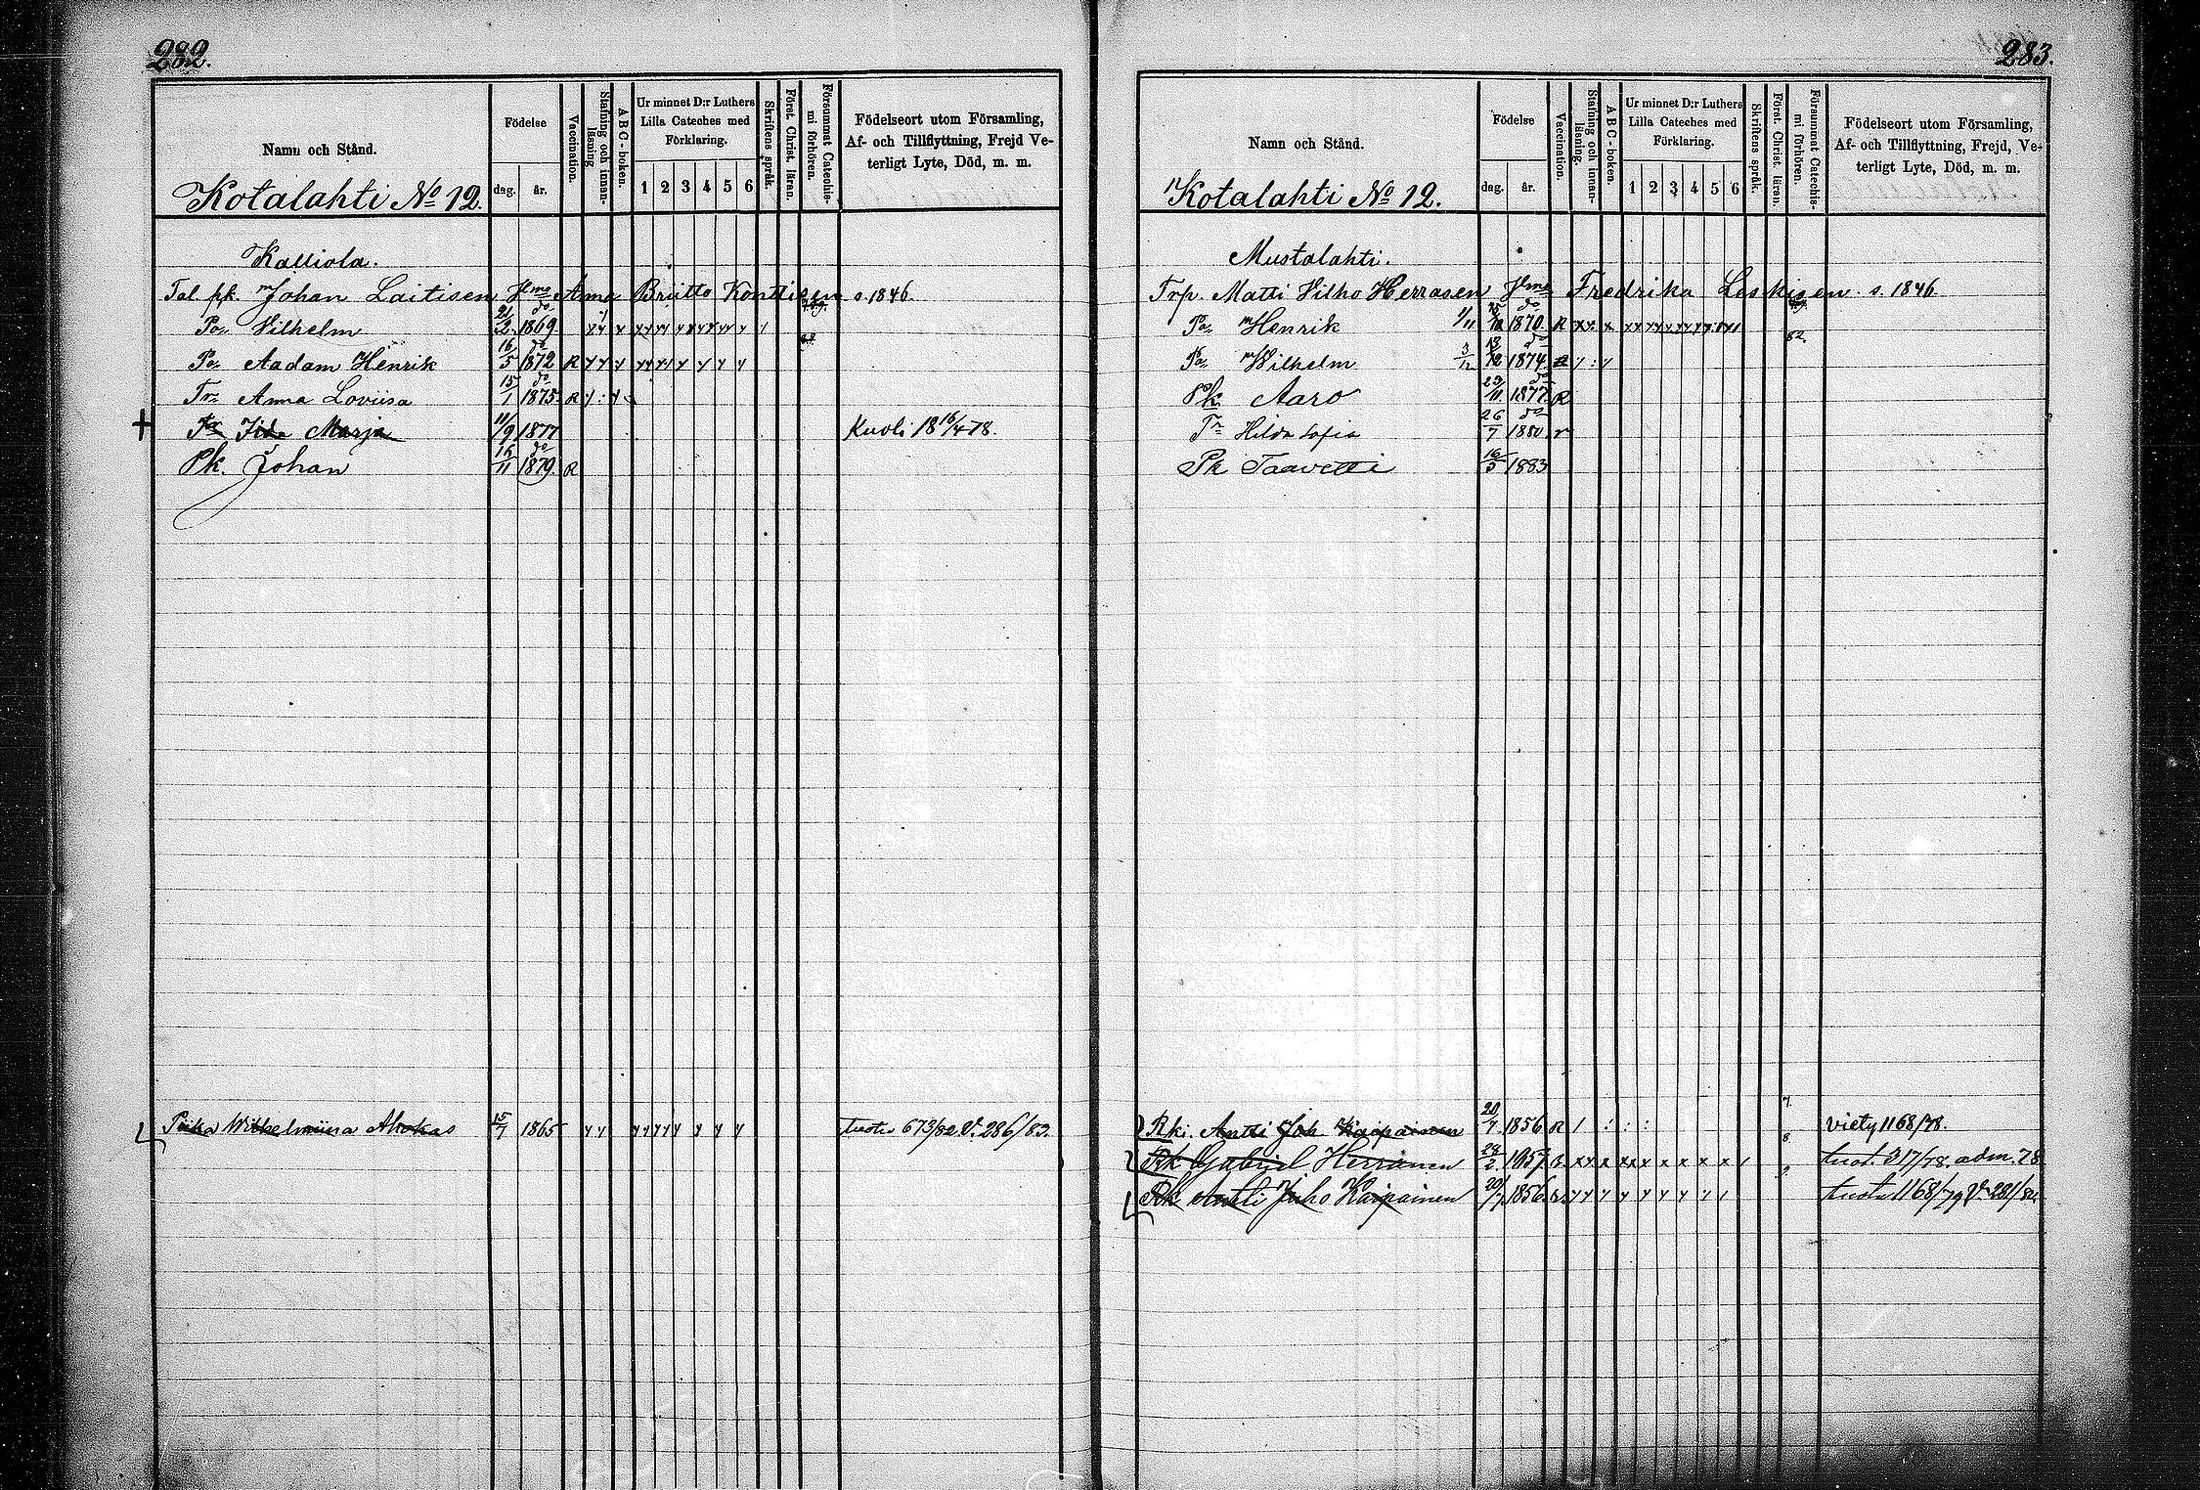 282.
Namn och Stånd.
Födelse
dag. år.
Vaccination.
Stafning och innan-
läsning
ABC-boken.
Ur minnet D:r Luthers
Lilla Cateches med
Förklaring.
1 2 3 4 5 6
Skriftens språk.
Först. Christ. läran.
Försummat Catechis-
mi förhören.
Födelseort utom Församling,
Af- och Tillflyttning, Frejd Ve-
terligt Lyte, Död, m. m.
Kotalahti No 12.
Kalliola.
Tal. pk. Johan Laitisen Anna Briitto Konttisen s. 1846.
Po. Vilhelm 21/2 1869
Po. Aadam Henrik 16/5 1872 R
Tr. Anna Loviisa 15/1 1875 R
+ Iida Marja 11/9 1877 Kuoli 18 16/4 78.
Pk. Johan 16/11 1879. R
Piika Wilhelmiina Ahokas 15/7 1865 tuotu 673/82 V. 286/83.
283.
Namn och Stånd.
Födelse
dag. år.
Vaccination.
Stafning och innan-
läsning.
ABC-boken.
Ur minnet D:r Luthers
Lilla Cateches med
Förklaring.
1 2 3 4 5 6
Skriftens språk.
Först. Christ. läran.
Försummat Catechis-
mi förhören.
Födelseort utom Församling,
Af- och Tillflyttning, Frejd, Ve-
terligt Lyte, Död, m. m.
Kotalahti No 12.
Mustalahti.
Trp. Matti Vilho Herrasen Fredrika Leskisen s. 1846
Po. Henrik 1870. R
Po. Wilhelm 1874.
Pk. Aaro 29/11 1877 R
Tr. Hilda Sofia 26/7 1880 r
Pk Taavetti 16/5 1883
Rki. Antti Joh. Kaipainen 20/7 1856 R viety 1168/78.
Rk Gabriel Herranen 28/2 1857 tuot. 317/78. adm. 78
Rk Antti Juho Kaipainen 20/7 1856 tuotu 1168/79 V. 281/80.